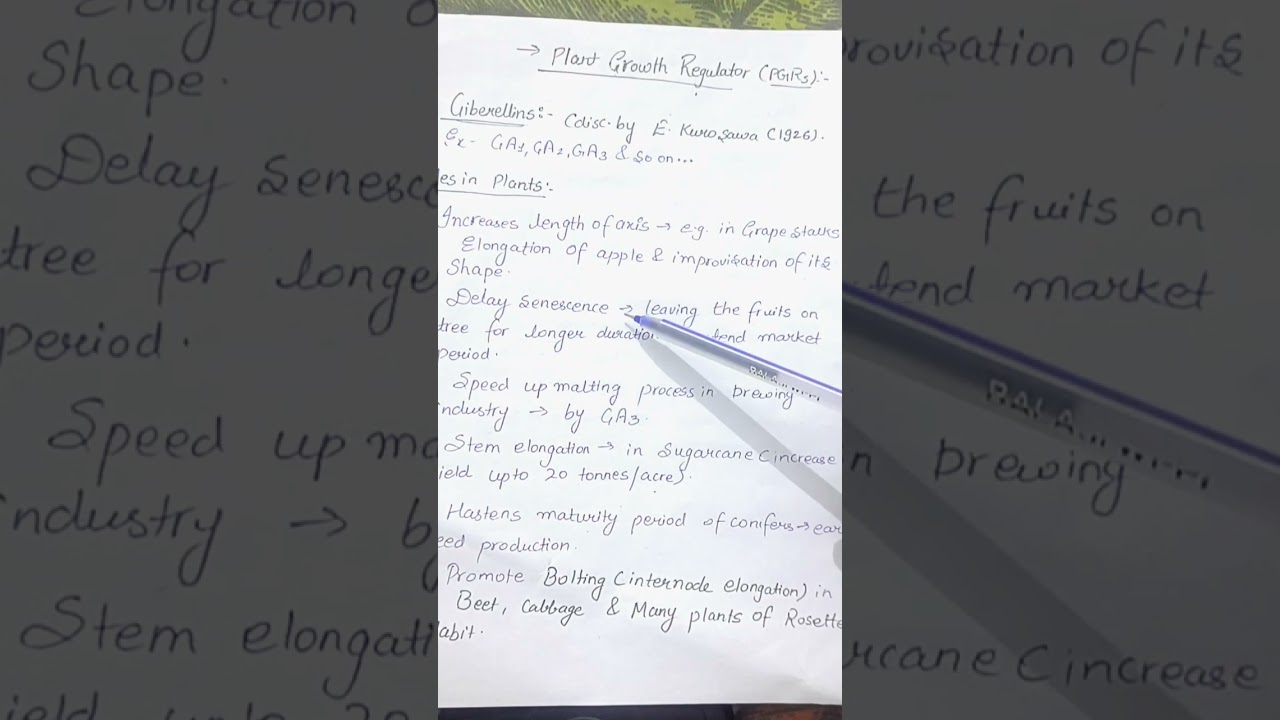 → Plant Growth Regulator (PGRs):-
Giberellins:- (disc. by E. Kurosawa (1926).
Ex- GA1, GA2, GA3 & so on...
es in Plants:-
Increases length of axis → e.g. in Grape stalks
Elongation of apple & improvisation of its
Shape.
Delay senescence → leaving the fruits on
tree for longer duration tend market
period.
Speed up malting process in brewing
industry → by GA3.
Stem elongation → in Sugarcane (increase
ield upto 20 tonnes/acre).
Hastens maturity period of conifers → ear
eed production.
Promote Bolting (internode elongation) in
Beet, Cabbage & Many plants of Rosette
abit.